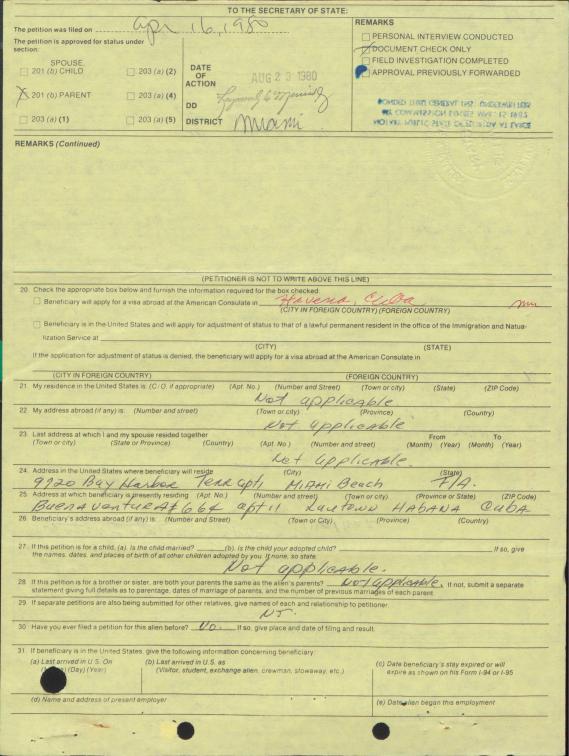 TO THE SECRETARY OF STATE:
The petition was filed on Apr 16, 1980
The petition is approved for status under section:
SPOUSE
201 (b) CHILD
203 (a) (2)
201 (b) PARENT
203 (a) (4)
203 (a) (1)
203 (a) (5)
DATE OF ACTION
AUG 2 9 1980
DD
DISTRICT Miami
REMARKS
PERSONAL INTERVIEW CONDUCTED
DOCUMENT CHECK ONLY
FIELD INVESTIGATION COMPLETED
APPROVAL PREVIOUSLY FORWARDED
NOTARY PUBLIC STATE OF FLORIDA AT LARGE
MY COMMISSION EXPIRES MAR 15 1982
BONDED THRU GENERAL INS. UNDERWRITERS
REMARKS (Continued)
(PETITIONER IS NOT TO WRITE ABOVE THIS LINE)
20. Check the appropriate box below and furnish the information required for the box checked:
Beneficiary will apply for a visa abroad at the American Consulate in Havena, Cuba
(CITY IN FOREIGN COUNTRY) (FOREIGN COUNTRY)
Beneficiary is in the United States and will apply for adjustment of status to that of a lawful permanent resident in the office of the Immigration and Natua-
lization Service at
(CITY) (STATE)
If the application for adjustment of status is denied, the beneficiary will apply for a visa abroad at the American Consulate in
(CITY IN FOREIGN COUNTRY) (FOREIGN COUNTRY)
21. My residence in the United States is: (C/O, if appropriate) (Apt. No.) (Number and Street) (Town or city) (State) (ZIP Code)
Not applicable
22. My address abroad (if any) is: (Number and street) (Town or city) (Province) (Country)
Not applicable
23. Last address at which I and my spouse resided together From To
(Town or city) (State or Province) (Country) (Apt. No.) (Number and street) (Month) (Year) (Month) (Year)
Not applicable.
24. Address in the United States where beneficiary will reside (City) (State)
9720 Bay Harbor Terr apt 1 MIAMI Beach FlA.
25. Address at which beneficiary is presently residing (Apt. No.) (Number and street) (Town or city) (Province or State) (ZIP Code)
BuenaventurA # 664 apt 11 Lawtown HABANA CUBA
26. Beneficiary's address abroad (if any) is: (Number and Street) (Town or City) (Province) (Country)
27. If this petition is for a child, (a). Is the child married? (b). Is the child your adopted child? If so, give
the names, dates, and places of birth of all other children adopted by you. If none, so state.
Not applicable.
28. If this petition is for a brother or sister, are both your parents the same as the alien's parents? Not applicable. If not, submit a separate
statement giving full details as to parentage, dates of marriage of parents, and the number of previous marriages of each parent.
29. If separate petitions are also being submitted for other relatives, give names of each and relationship to petitioner.
30. Have you ever filed a petition for this alien before? NO. If so, give place and date of filing and result.
31. If beneficiary is in the United States, give the following information concerning beneficiary:
(a) Last arrived in U.S. On
(Day) (Year)
(b) Last arrived in U.S. as
(Visitor, student, exchange alien, crewman, stowaway, etc.)
(c) Date beneficiary's stay expired or will
expire as shown on his Form I-94 or I-95
(d) Name and address of present employer
(e) Date alien began this employment